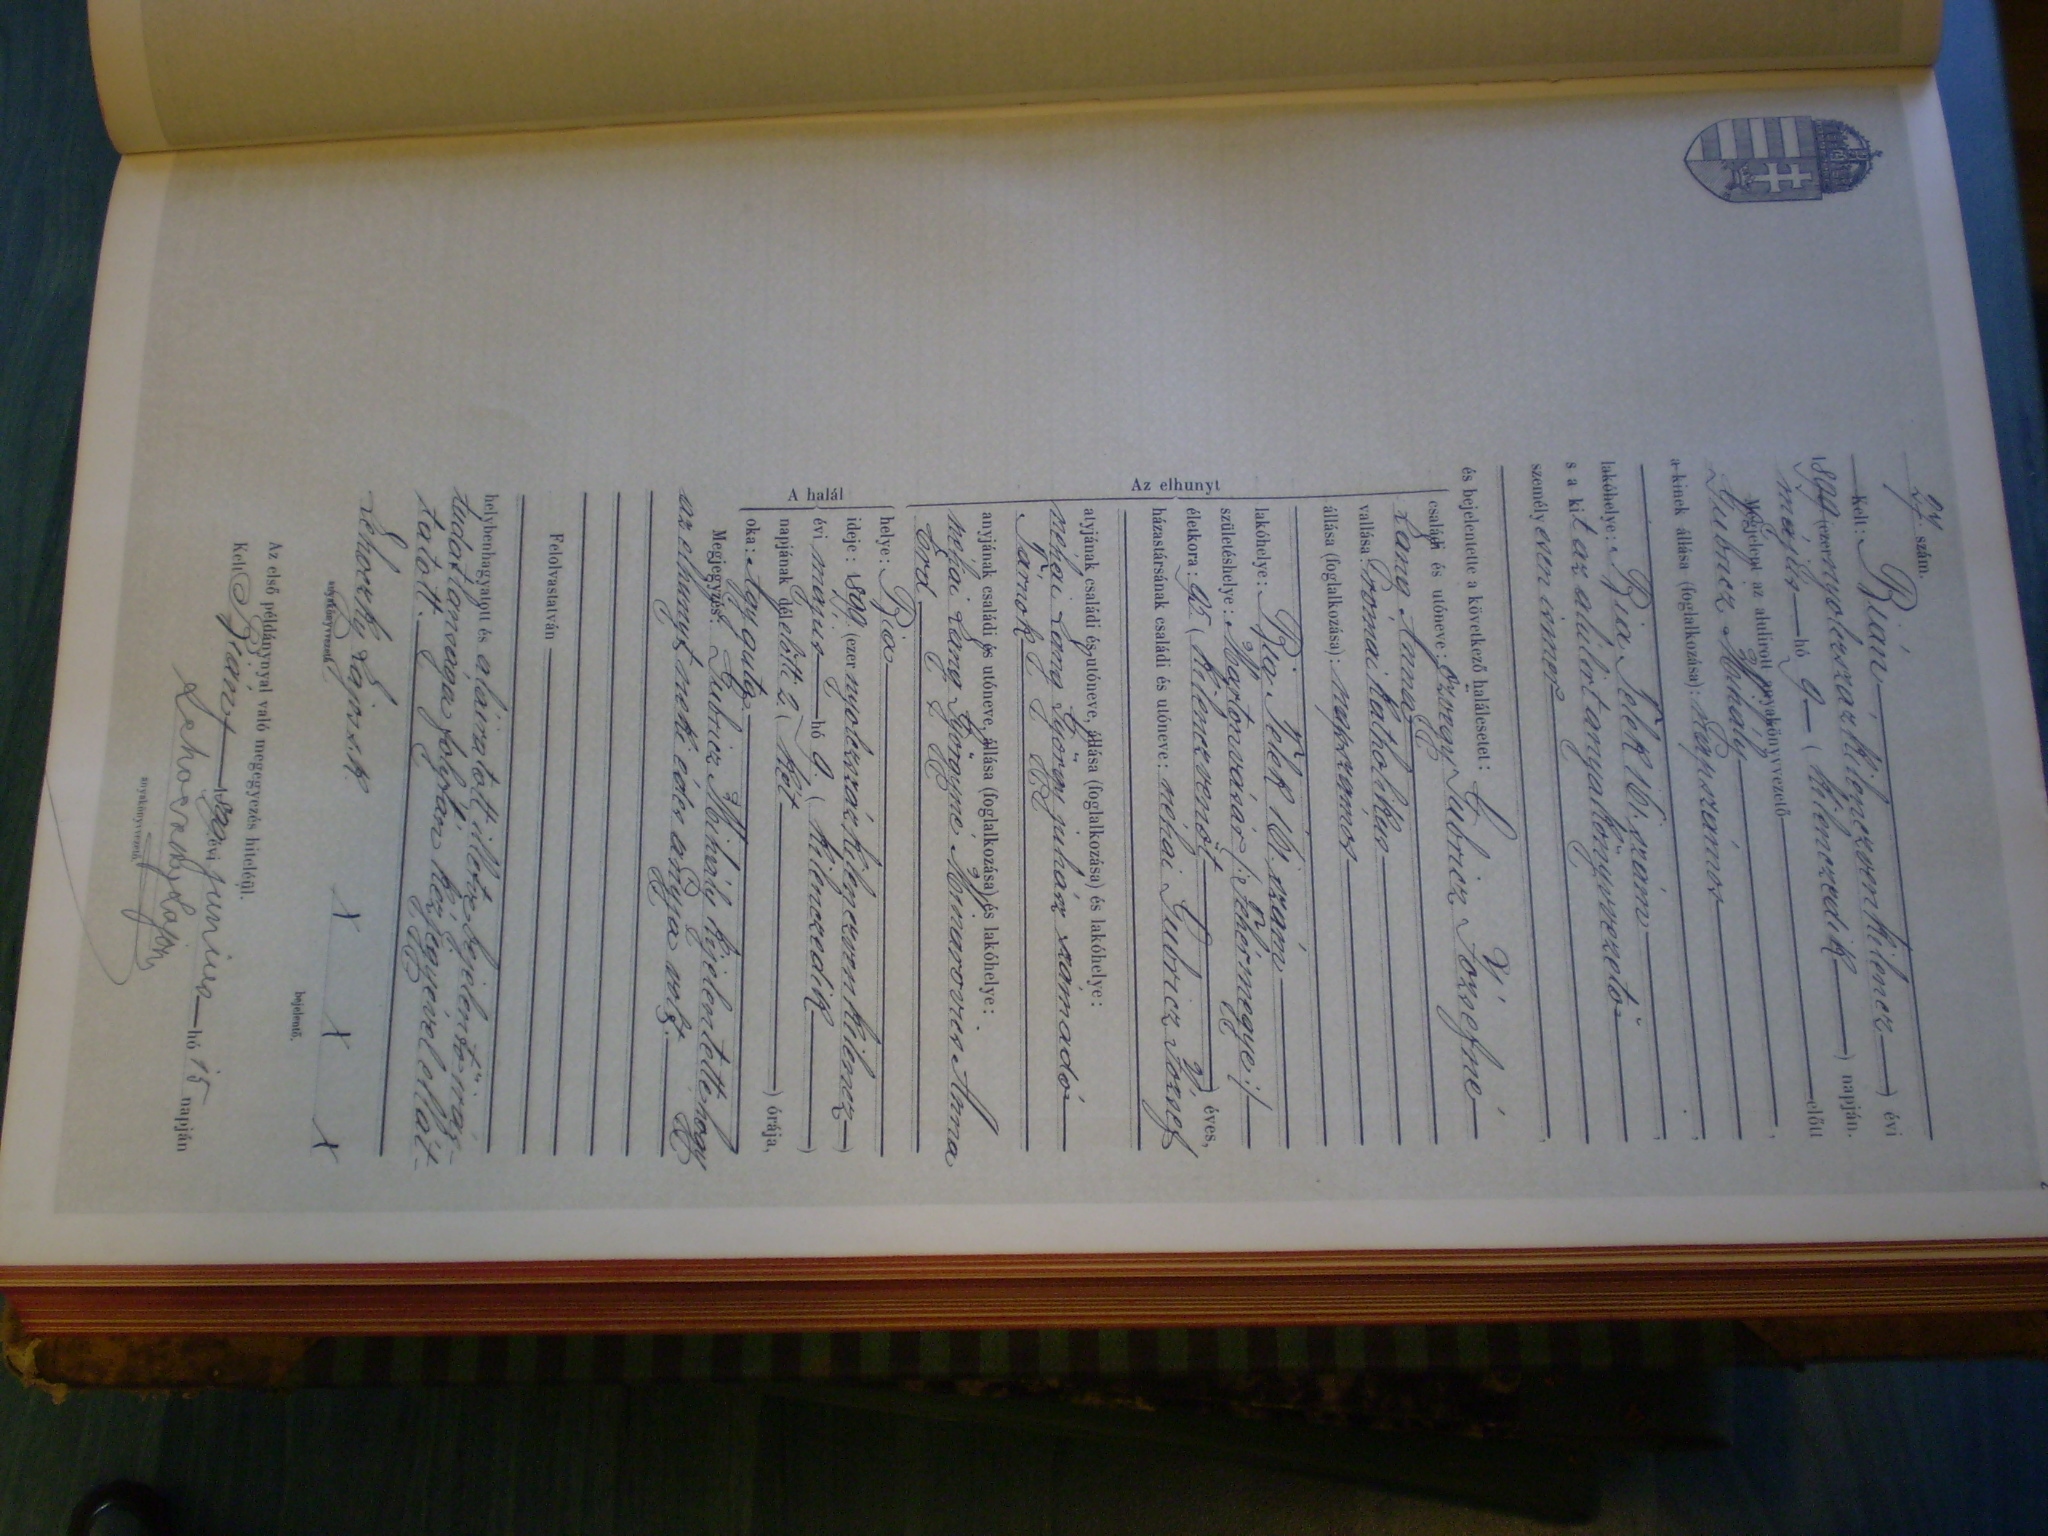 szám.
Kelt: Bián, 1899 (ezernyolczszázkilenczvenkilencz) évi
május hó 9 (kilenczedik) napján.
Megjelent az alulirott anyakönyvvezető előtt
Gubricz Mihály,
a kinek állása (foglalkozása): napszámos,
lakóhelye: Bia Telek 161. szám,
s a kit az alulirt anyakönyvvezető
személyesen ismer,
és bejelentette a következő halálesetet:
Az elhunyt
családi és utóneve: özvegy Gubricz Józsefné
Lang Anna
vallása: római katholikus
állása (foglalkozása): napszámos
lakóhelye: Bia Telek 161. szám
születéshelye: Martonvásár /: Fehérmegye :/
életkora: 95 (kilenczvenöt) éves,
házastársának családi és utóneve: néhai Gubricz József
atyjának családi és utóneve, állása (foglalkozása) és lakóhelye:
néhai Lang György juhász számadó
Tárnok
anyjának családi és utóneve, állása (foglalkozása) és lakóhelye:
néhai Lang Györgyné Anna
Érd
A halál
helye: Bia
ideje: 1899 (ezernyolczszázkilenczvenkilencz)
évi május hó 9. (kilenczedik)
napjának délelőtt 2. (két) órája,
oka: Agg aszály
Megjegyzés: Gubricz Mihály kijelentette hogy
az elhunyt neki édes anyja volt.
Felolvastatván
helybenhagyatott és aláiratott illetve bejelentő irás-
tudatlansága folytán kézjegyével ellát-
tatott.
Lehoczky Lajos s. k.
anyakönyvvezető.
x x x
bejelentő.
Az első példánynyal való megegyezés hiteléül.
Kelt Bián, 1899 évi junius hó 15 napján
Lehoczky Lajos
anyakönyvvezető.